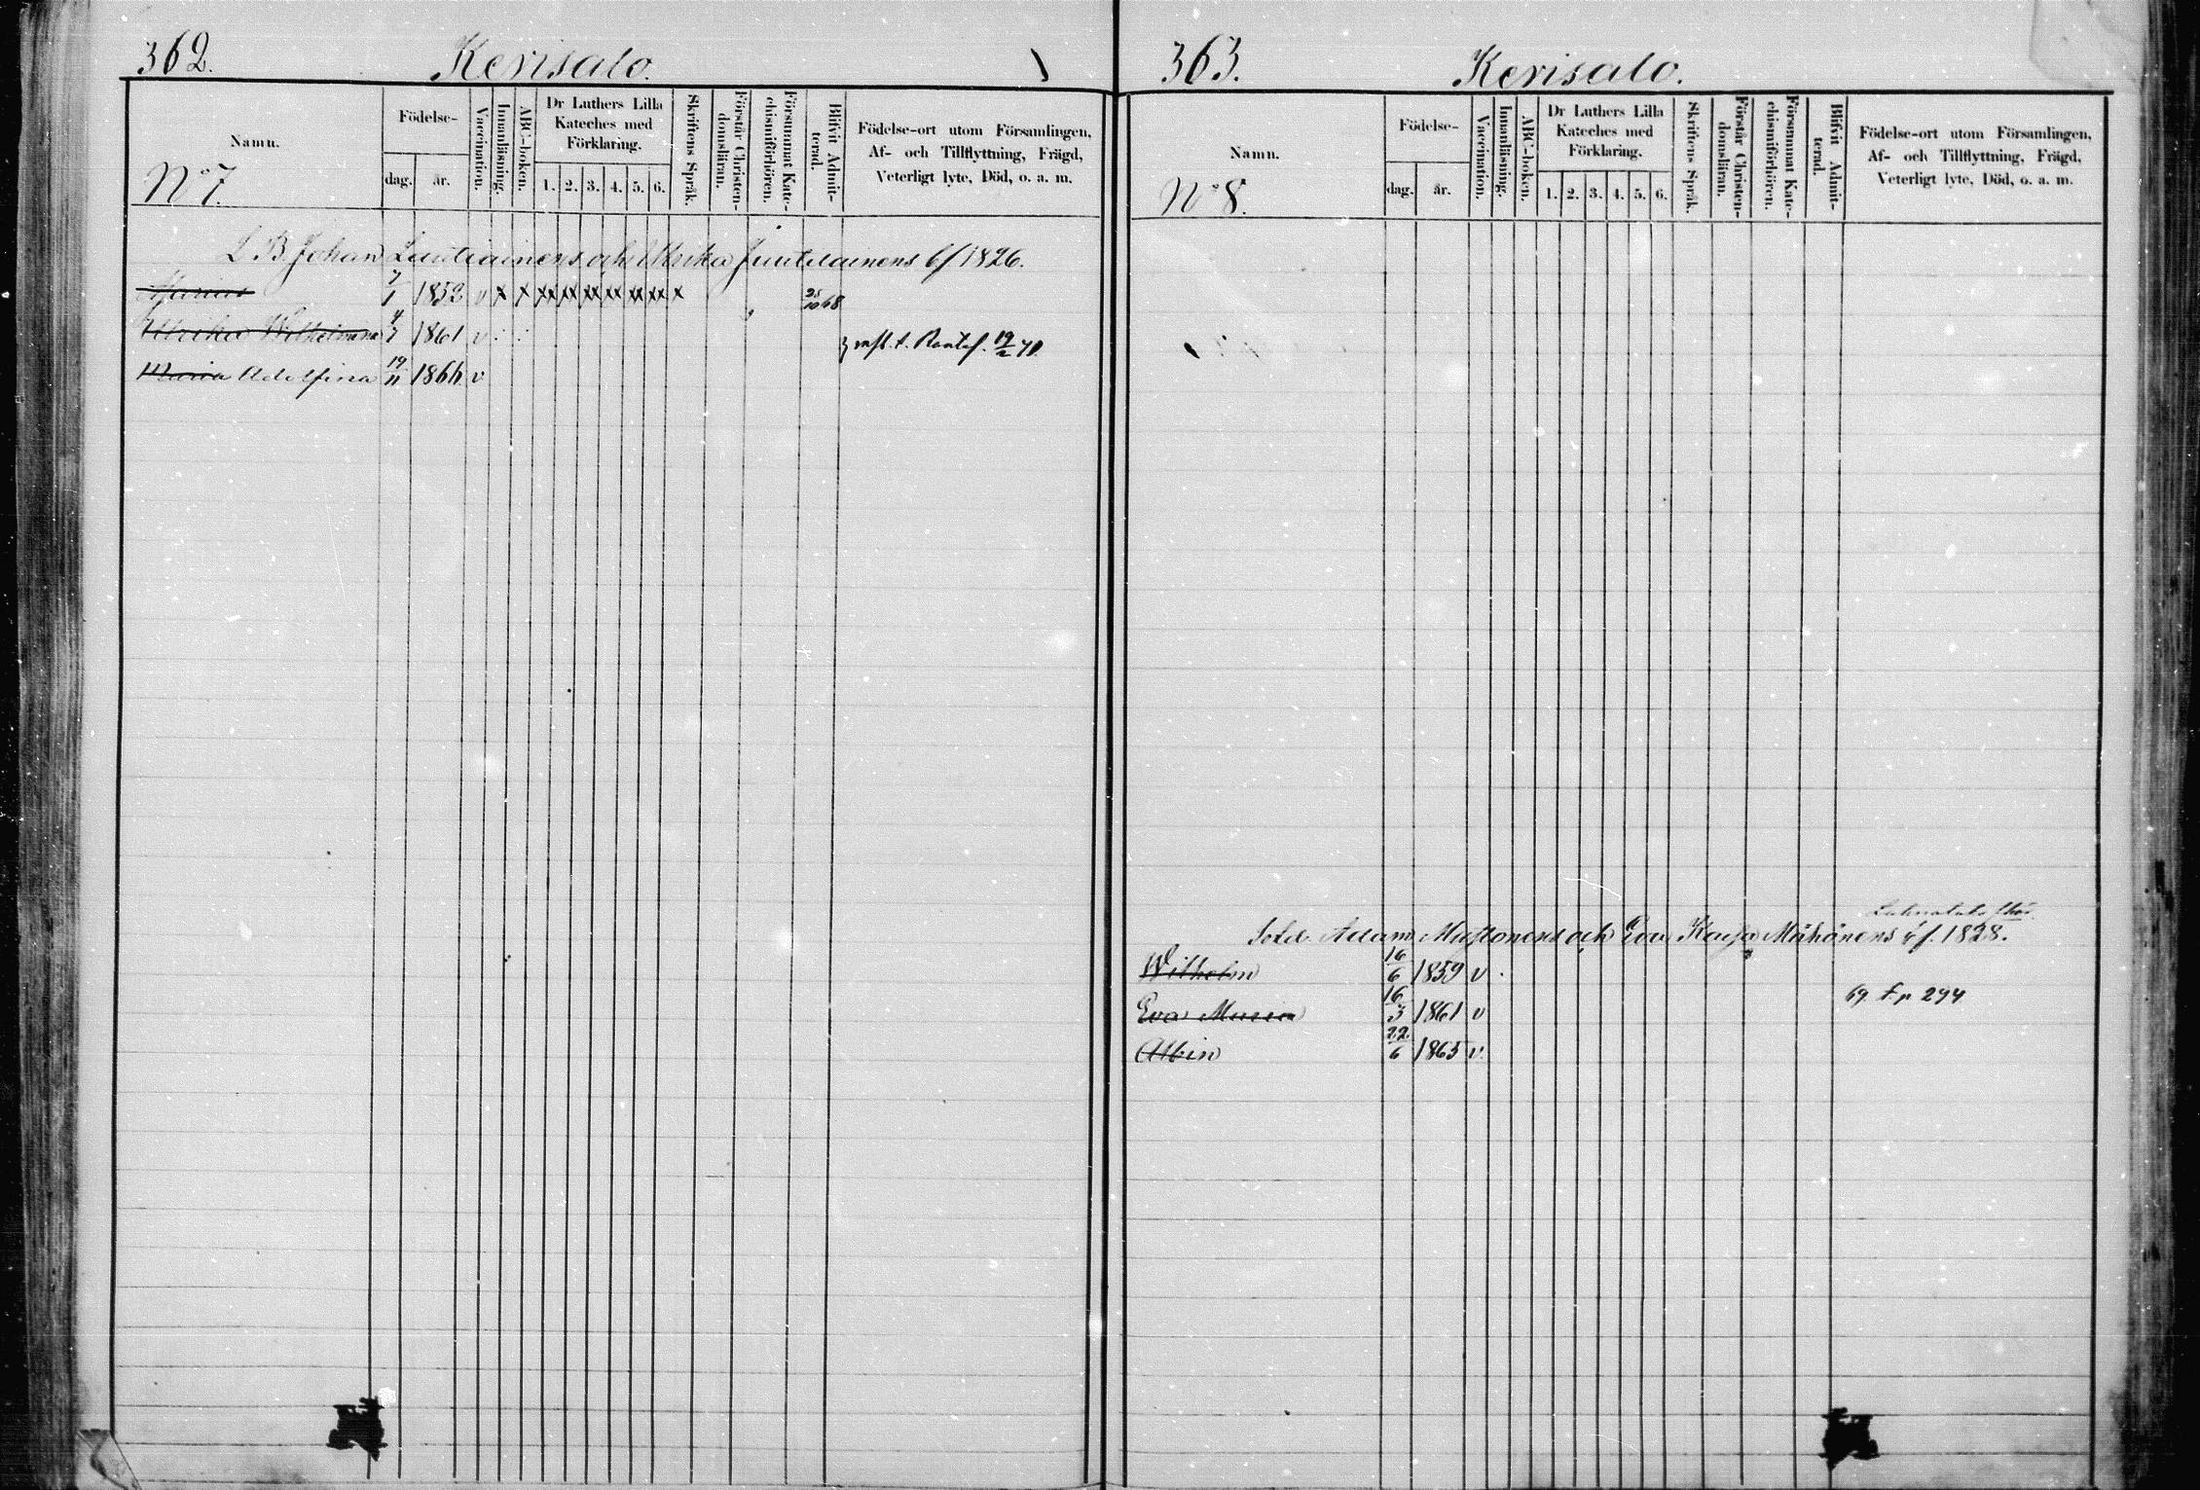 362. Kerisalo.
Namn.
No 7.
Födelse-
dag. år.
Vaccination.
Innanläsning.
ABC-boken.
Dr Luthers Lilla
Kateches med
Förklaring.
1. 2. 3. 4. 5. 6.
Skriftens Språk.
Förstår Christen-
domsläran.
Försummat Kate-
chismiförhören.
Blifvit Admit-
terad.
Födelse-ort utom Församlingen,
Af- och Tillflyttning, Frägd,
Veterligt lyte, Död, o. a. m.
L. B. Johan Luutiainens och Ulrika Juutilainens bf 1826.
7/1 1852 v x x xx xx xx xx xx xx x 25/10 68
Ulrika Wilhelmina 4/7 1861 v
t. Rantas. 19/2 71.
Maria Adolfina 19/11 1866 v
363. Kerisalo.
Namn.
No 8.
Födelse-
dag. år.
Vaccination.
Innanläsning.
ABC-boken.
Dr Luthers Lilla
Kateches med
Förklaring.
1. 2. 3. 4. 5. 6.
Skriftens Språk.
Förstår Christen-
domsläran.
Försummat Kate-
chismiförhören.
Blifvit Admit-
terad.
Födelse-ort utom Församlingen,
Af- och Tillflyttning, Frägd,
Veterligt lyte, Död, o. a. m.
Sold. Adam Mustonens och Eva Kaisa Miihönens f. 1828.
Wilhelm 16/6 1859 v
69 f. p 294
Eva Maria 16/3 1861 v
Albin 22/6 1865 v.